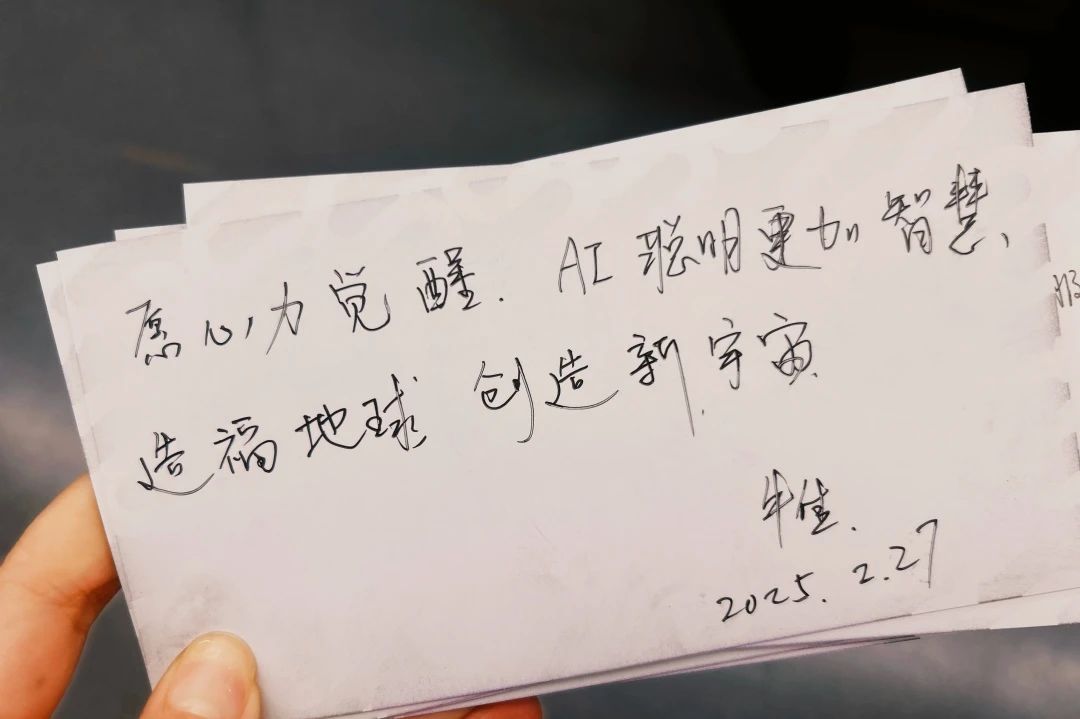 愿心力觉醒. AI聪明更加智慧,
造福地球 创造新宇宙
牛佳.
2025.2.27